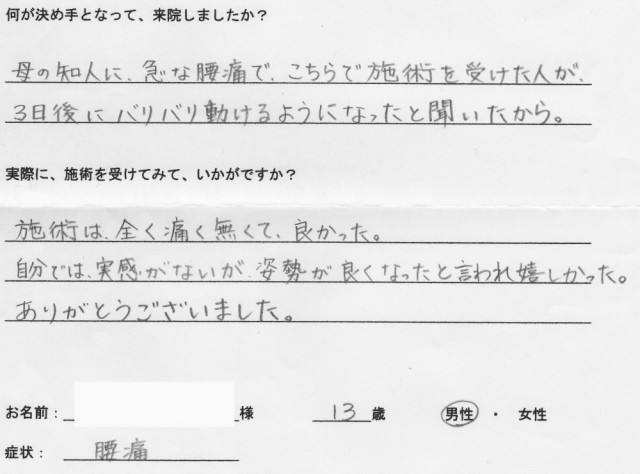 何が決め手となって、来院しましたか？
母の知人に、急な腰痛で、こちらで施術を受けた人が、
3日後にバリバリ動けるようになったと聞いたから。
実際に、施術を受けてみて、いかがですか？
施術は、全く痛く無くて、良かった。
自分では、実感がないが、姿勢が良くなったと言われ嬉しかった。
ありがとうございました。
お名前： 様 13歳 男性 ・ 女性
症状： 腰痛